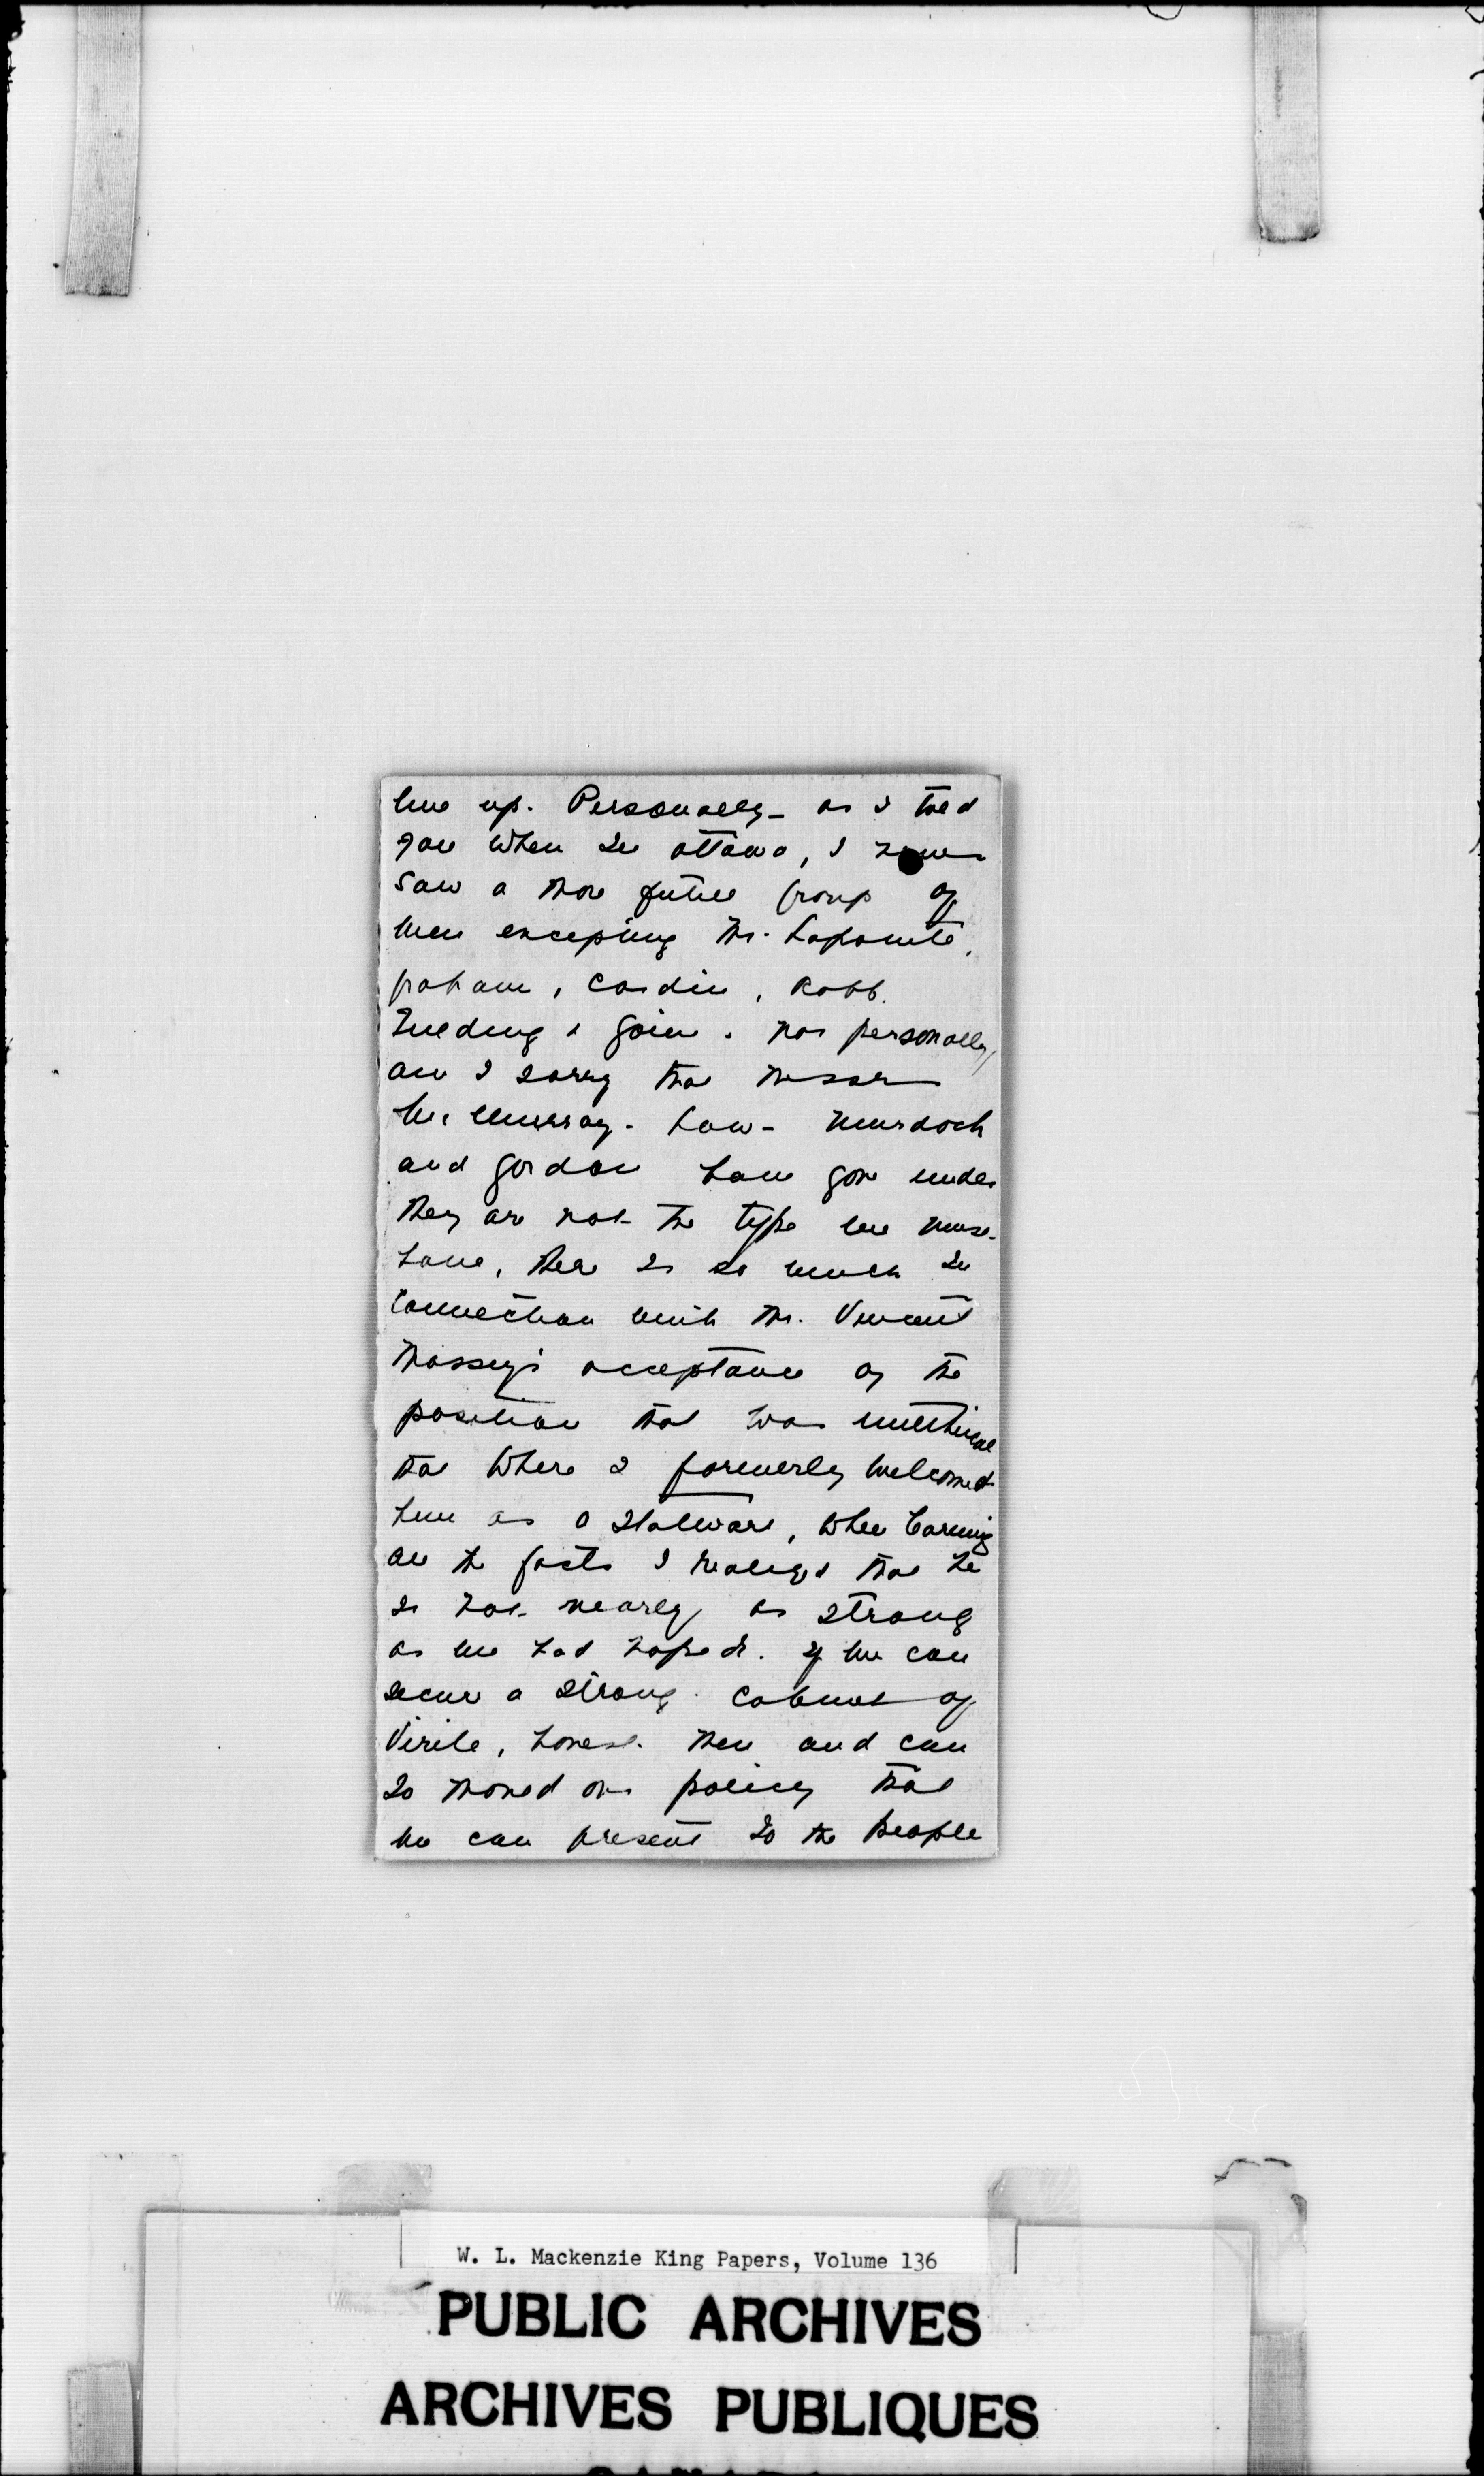 line up. Personally - as I told
you when in Ottawa, I never
saw a more futile group of
men excepting Mr. Lapointe,
Graham, Cardin, Robb.
& Goin. Nor personally
am I sorry that Messrs
McMurray - Low - Murdoch
and Gordon have gone under
they are not the type we must
have, there is so much in
connection with Mr. Vincent
Massey's acceptance of the
position that was unethical
that where I formerly welcomed
him as a stalwart, when learning
all the facts I realized that he
is not nearly as strong
as we had hoped. If we can
secure a strong Cabinet of
Virile, honest men and can
so mould our policy that
we can present to the people
W. L. Mackenzie King Papers, Volume 136
PUBLIC ARCHIVES
ARCHIVES PUBLIQUES